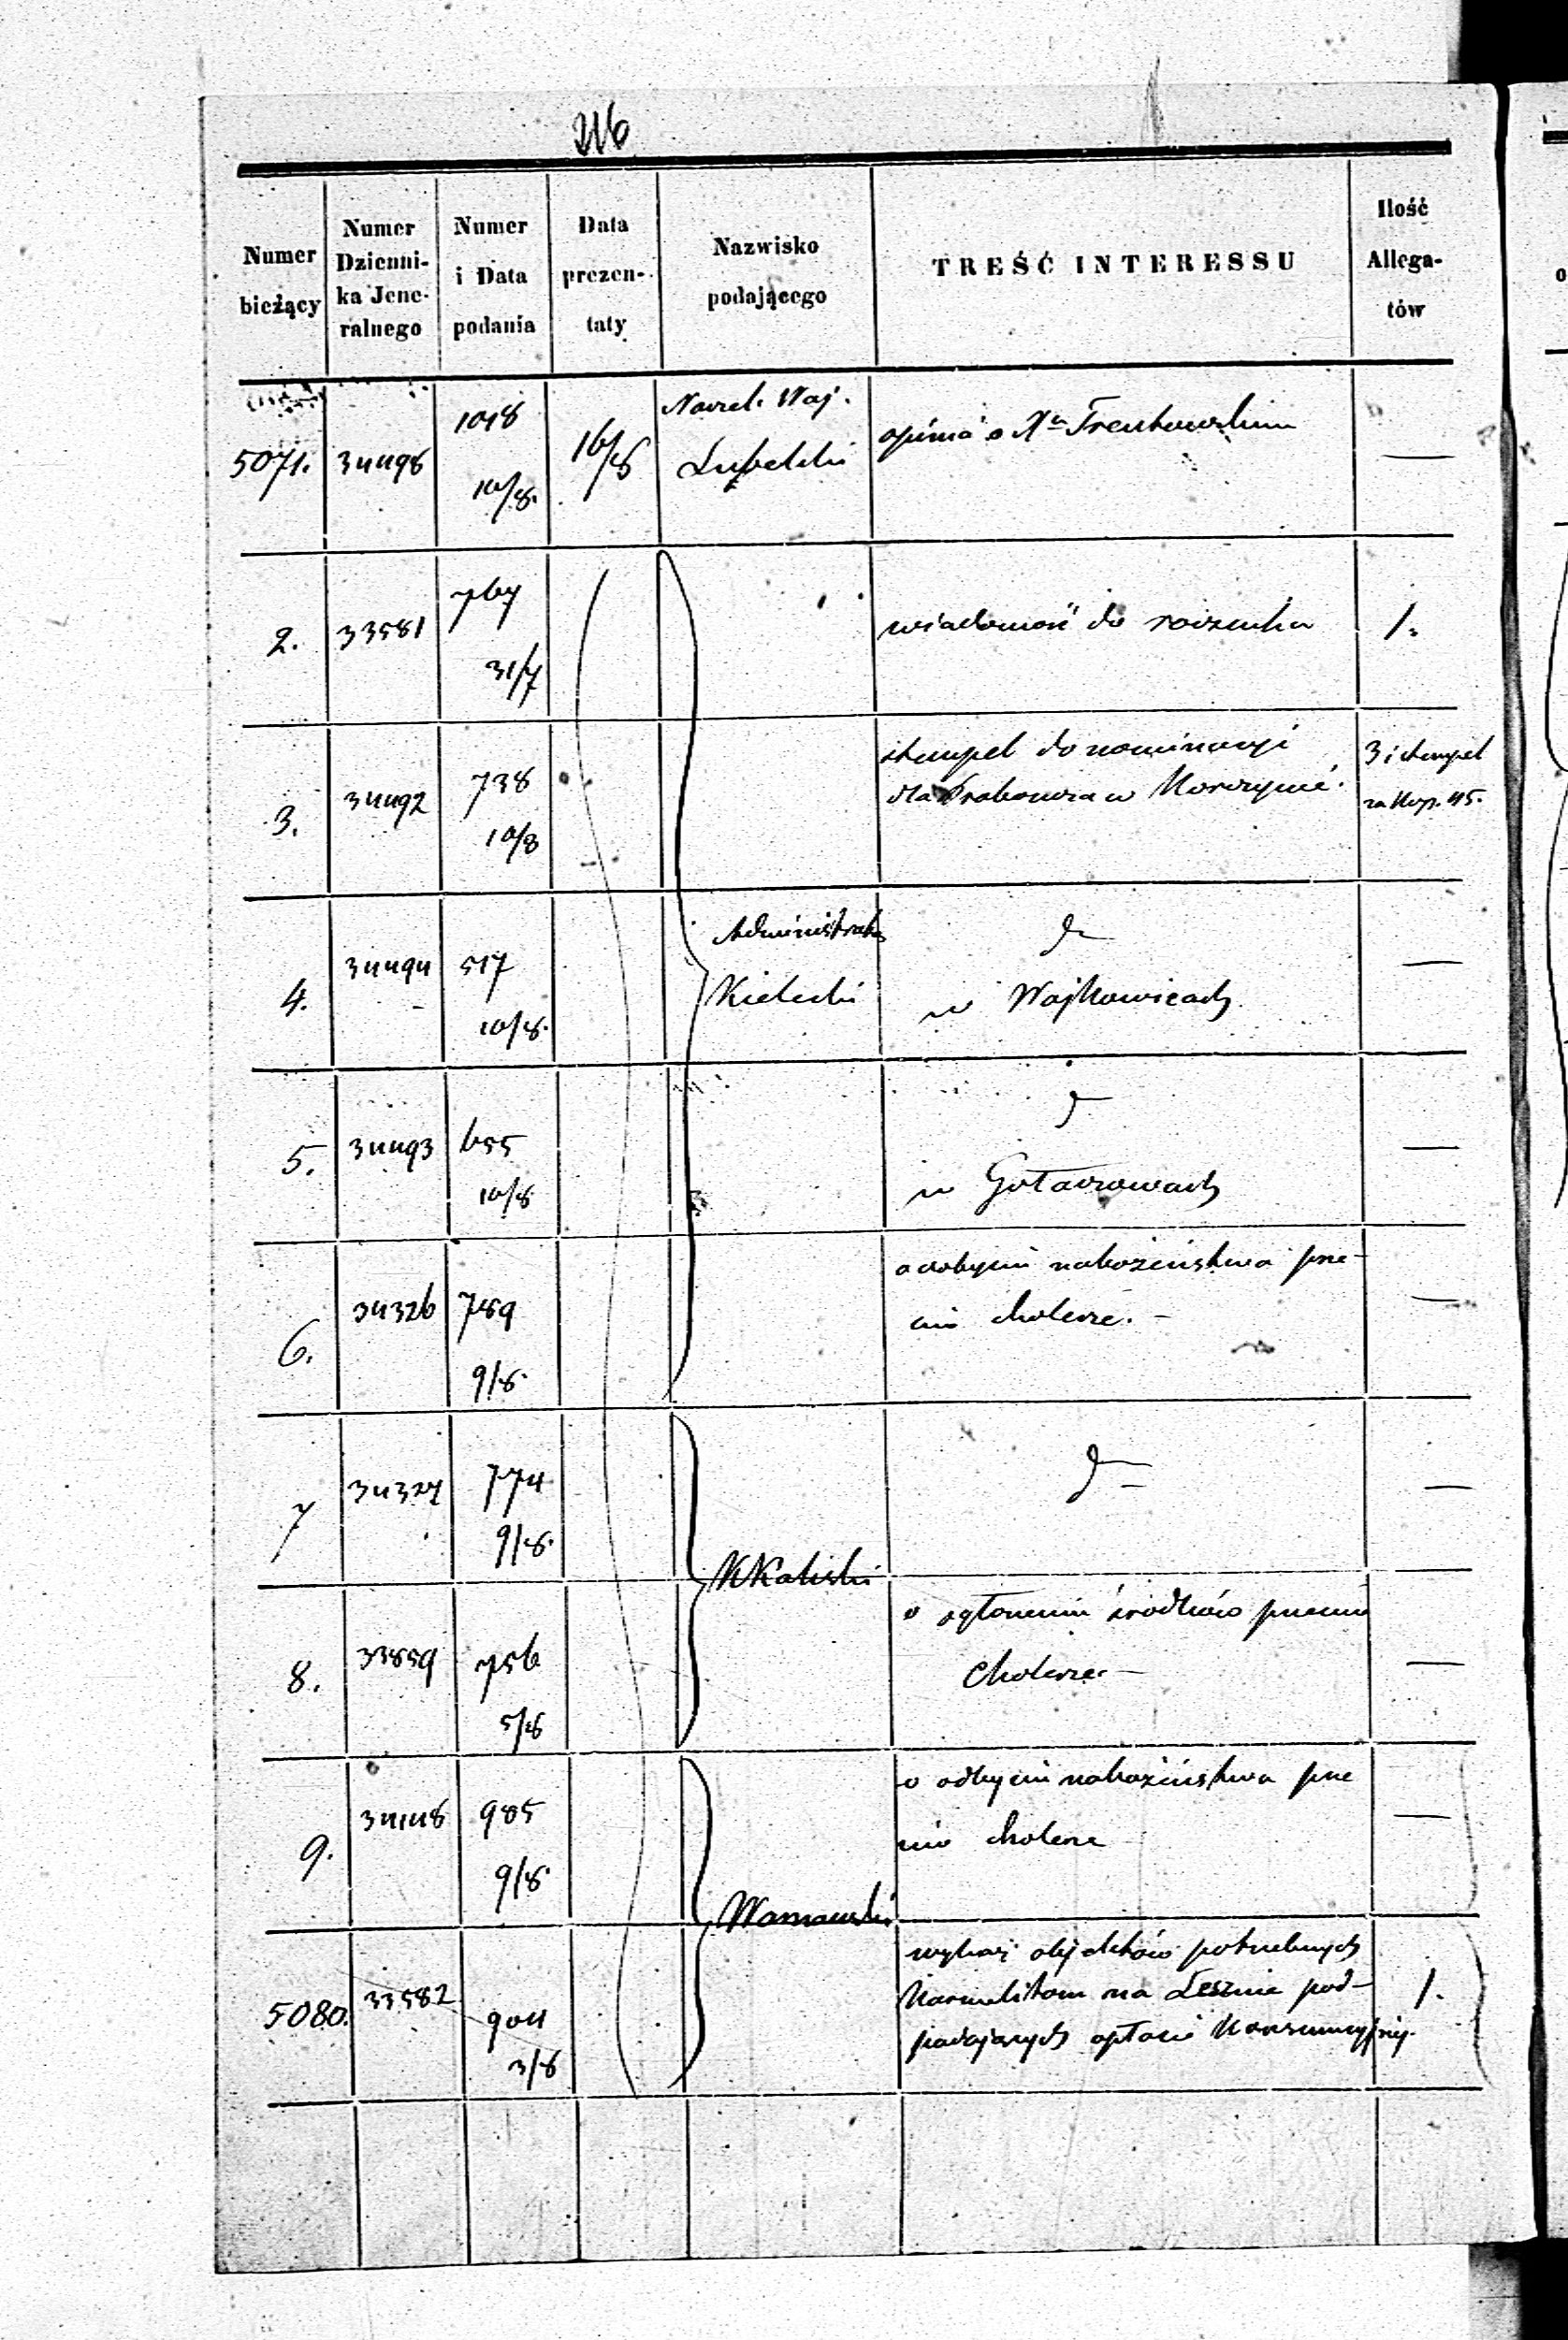 216
Numer bieżący | Numer Dzienni- ka Jene- ralnego | Numer i Data podania | Data prezen- taty | Nazwisko podającego | TREŚĆ INTERESSU | Ilość Allega- tów
5071. | 34498 | 1018 10/8. | 16/8 | Naczel. Woj. Lubelski | opinia o Xu Trentowskim | —
2. | 33581 | 767 31/7 | wiadomość do rocznika | 1.
3. | 34492 | 738 10/8 | stempel do nominacyi dla Proboszcza w Korczynie. | 3 i stempel za kop. 45.
4. | 34494 | 517 10/8. | Administrator Kielecki | do w Wojkowicach | —
5. | 34493 | 655 10/8 | do w Gołaczowach | —
6. | 34326 | 789 9/8. | o odbyciu nabożeństwa prze- ciw cholerze. – | —
7 | 34327 | 774 9/8. | K Kaliski | do – | —
8. | 33859 | 756 5/8 | o ogłoszeniu środków przeciw cholerze. – | —
9. | 34148 | 985 9/8. | o odbyciu nabożeństwa prze ciw cholerze | —
5080. | 33582 | 904 3/8 | Warszawski | wykaz objektów potrzebnych Karmelitom na Lesznie pod- padających opłacie Konsumcyjnej. | 1.